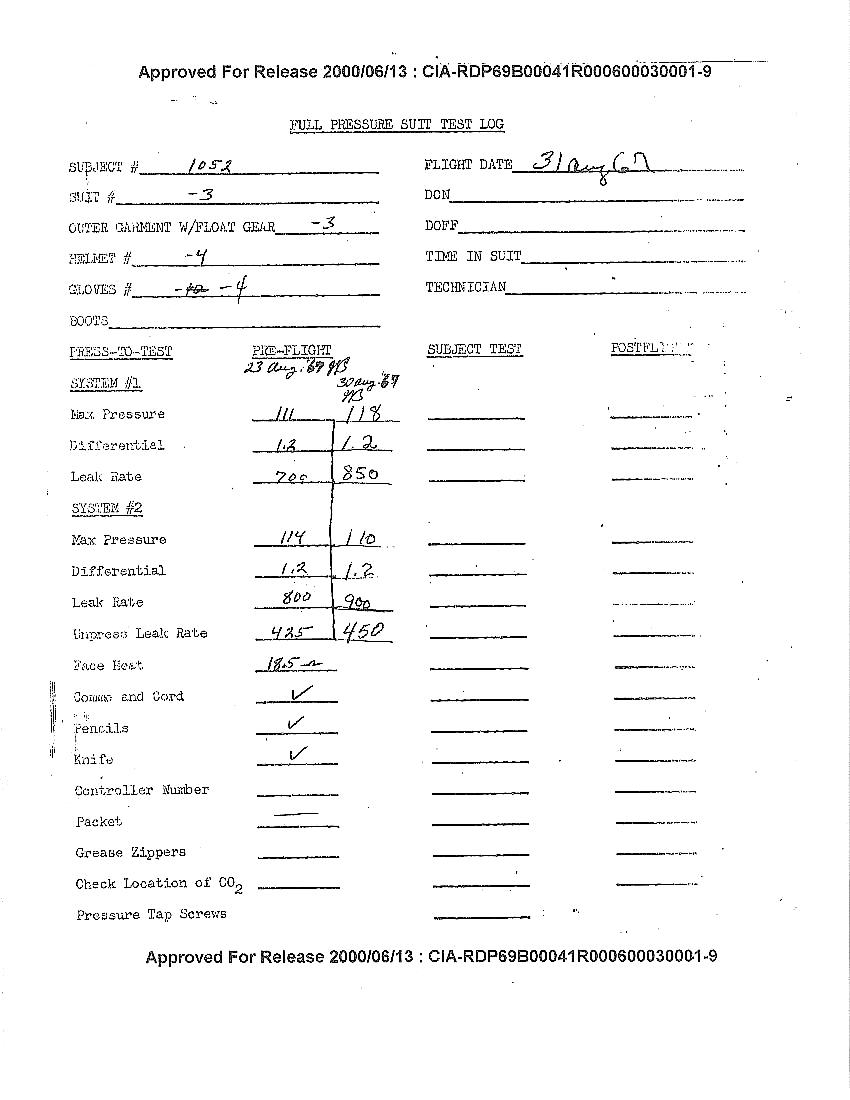 Approved For Release 2000/06/13 : CIA-RDP69B00041R000600030001-9
FULL PRESSURE SUIT TEST LOG
SUBJECT # 1052 FLIGHT DATE 31 Aug 67
SUIT # -3 DON
OUTER GARMENT W/FLOAT GEAR -3 DOFF
HELMET # -4 TIME IN SUIT
GLOVES # -4 TECHNICIAN
BOOTS
PRESS-TO-TEST PRE-FLIGHT SUBJECT TEST POSTFL
23 Aug. '67
SYSTEM #1 30 Aug. 67
Max Pressure 111 118
Differential 1.2 1.2
Leak Rate 700 850
SYSTEM #2
Max Pressure 114 110
Differential 1.2 1.2
Leak Rate 800 900
Unpress Leak Rate 425 450
Face Heat 18.5
Commo and Cord ✓
Pencils ✓
Knife ✓
Controller Number
Packet —
Grease Zippers
Check Location of CO2
Pressure Tap Screws
Approved For Release 2000/06/13 : CIA-RDP69B00041R000600030001-9